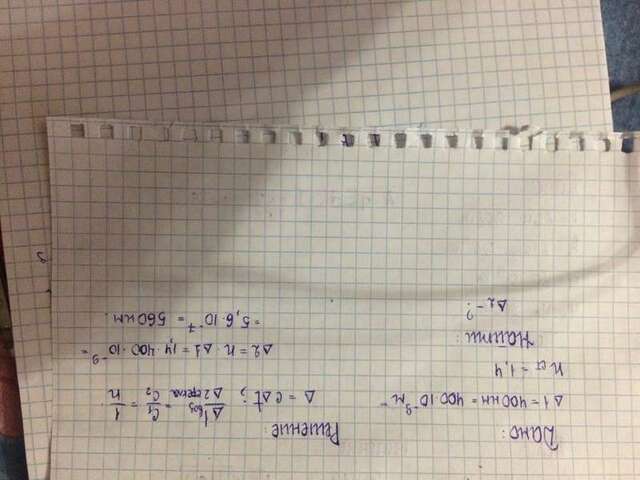 Дано:
Δ1 = 400 нм = 400·10⁻⁹ м
n ст = 1,4
Найти:
Δ2 - ?
Решение:
Δ = cΔt; Δ1воз / Δ2 = C₁/C₂ = 1/n
Δ2 = n·Δ1 = 1,4·400·10⁻⁹ =
= 5,6·10⁻⁷ = 560 нм.